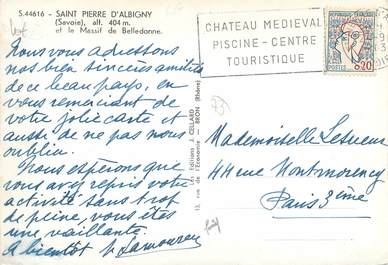 S.44616 - SAINT PIERRE D'ALBIGNY
(Savoie), alt. 404 m.
et le Massif de Belledonne.
Nous vous adressons
nos bien sincères amitiés
de ce beau pays, en
vous remerciant de
votre jolie carte et
aussi de ne pas nous
oublier.
Nous espérons que
vous avez repris votre
activité sans trop
de peine, vous êtes
une vaillante.
A bientôt Lamoureux
Les Editions J. CELLARD
13, rue de l'Economie - BRON (Rhône)
CHATEAU MEDIEVAL
PISCINE - CENTRE
TOURISTIQUE
REPUBLIQUE FRANCAISE
POSTES
0,20
Mademoiselle Lesueur
44 rue Montmorency
Paris 3ème